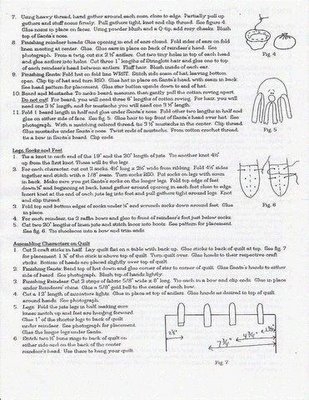 7. Using heavy thread, hand gather around each nose, close to edge. Partially pull up
gathers and stuff nose firmly. Pull gathers tight, knot and clip thread. See figure 4.
Glue noses in place on faces. Using powder blush and a Q-tip, add rosy cheeks. Blush
top of Santa's nose.
Finishing reindeer heads: Glue opening in ears closed. Fold sides of ears so fold
lines meeting at center. Glue. Glue ears in place on back of reindeer's head. See
photograph. From a twig, cut six 2" antlers. Cut two tiny holes in top of each head
and glue antlers into holes. Cut three 1" lengths of
of each reindeer's head between antlers. Fluff hair. Blush inside of each ear.
Finishing Santa: Fold hat on fold line WRST. Stitch side seam of hat, leaving bottom
open. Clip tip of hat and turn RSO. Glue hat in place on Santa's head, with seam in back.
See head pattern for placement. Glue star button upside down to end of hat.
Beard and Mustache: To make beard, measure then gently pull the cotton roving apart.
Do not cut! For beard, you will need three 6" lengths of cotton roving. For hair, you will
need one 3" length, and for mustache you will need one 3" length.
Fold 1 beard length in half and glue under Santa's nose. Fold other two lengths in half and
glue on either side of face. See fig 5. Glue hair to top front of Santa's head over hat. See
photograph. With a matching colored thread, tie 3" mustache in the center. Clip thread.
Glue mustache under Santa's nose. Twist ends of mustache. From cotton crochet thread,
tie a bow in Santa's beard. Clip ends.
Fig. 4
Fig. 5
Legs, Socks and Feet
1. Tie a knot in each end of the 19" and the 20" length of jute. Tie another knot 4½"
up from the first knot. These will be the legs.
2. For each character, cut out 2 socks 4¾" long x 2¼" wide from ribbing. Fold 4¾" sides
together and stitch with a 1/8" seam. Turn socks RSO. Put socks on legs with seam
in back. Make sure you put Santa's socks on the longer legs. Fold top edge of foot
down ¼" and beginning at back, hand gather around opening in each foot close to edge.
Insert knot at the end of each jute leg into foot and pull gathers tight around legs. Knot
and clip thread.
Fold top and bottom edges of socks under ¼" and scrunch socks down around feet. Glue
in place.
4. For each reindeer, tie 2 raffia bows and glue to front of reindeer's foot just below socks.
5. Cut two 20" lengths of linen jute and stitch laces into boots. See pattern for placement.
See fig 6. Tie shoelaces into a bow and trim ends.
Fig. 6
Assembling Characters on Quilt
1. Cut 3 craft sticks in half. Lay quilt flat on a table with back up. Glue sticks to back of quilt at top. See fig. 7
for placement. 1 ¾" of the stick is above top of quilt. Turn quilt over. Glue heads to their respective craft
sticks. Bottom of heads are placed slightly over top of quilt.
2. Finishing Santa: Bend top of hat down and glue corner of star to corner of quilt. Glue Santa's hands to either
side of beard. See photograph. Blush top of hands lightly.
3. Finishing Reindeer: Cut 2 strips of fabric 5/8" wide x 8" long. Tie each in a bow and clip ends. Glue in place
under Reindeers' chins. Glue a 5/8" gold bell to the center of each bow.
4. Cut a 17" length of miniature lights. Glue in place at top of antlers. Glue hands as desired to top of quilt
around heads. See photograph.
5. Legs: Fold the jute legs in half making sure
knees match up and feet are facing forward.
Glue 1" of the shorter legs to back of quilt
under reindeer. See photograph for placement.
Glue the longer legs under Santa.
6. Stitch two ½" bone rings to back of quilt on
either side and on the back of the center
reindeer's head. Use these to hang your quilt.
Fig. 7